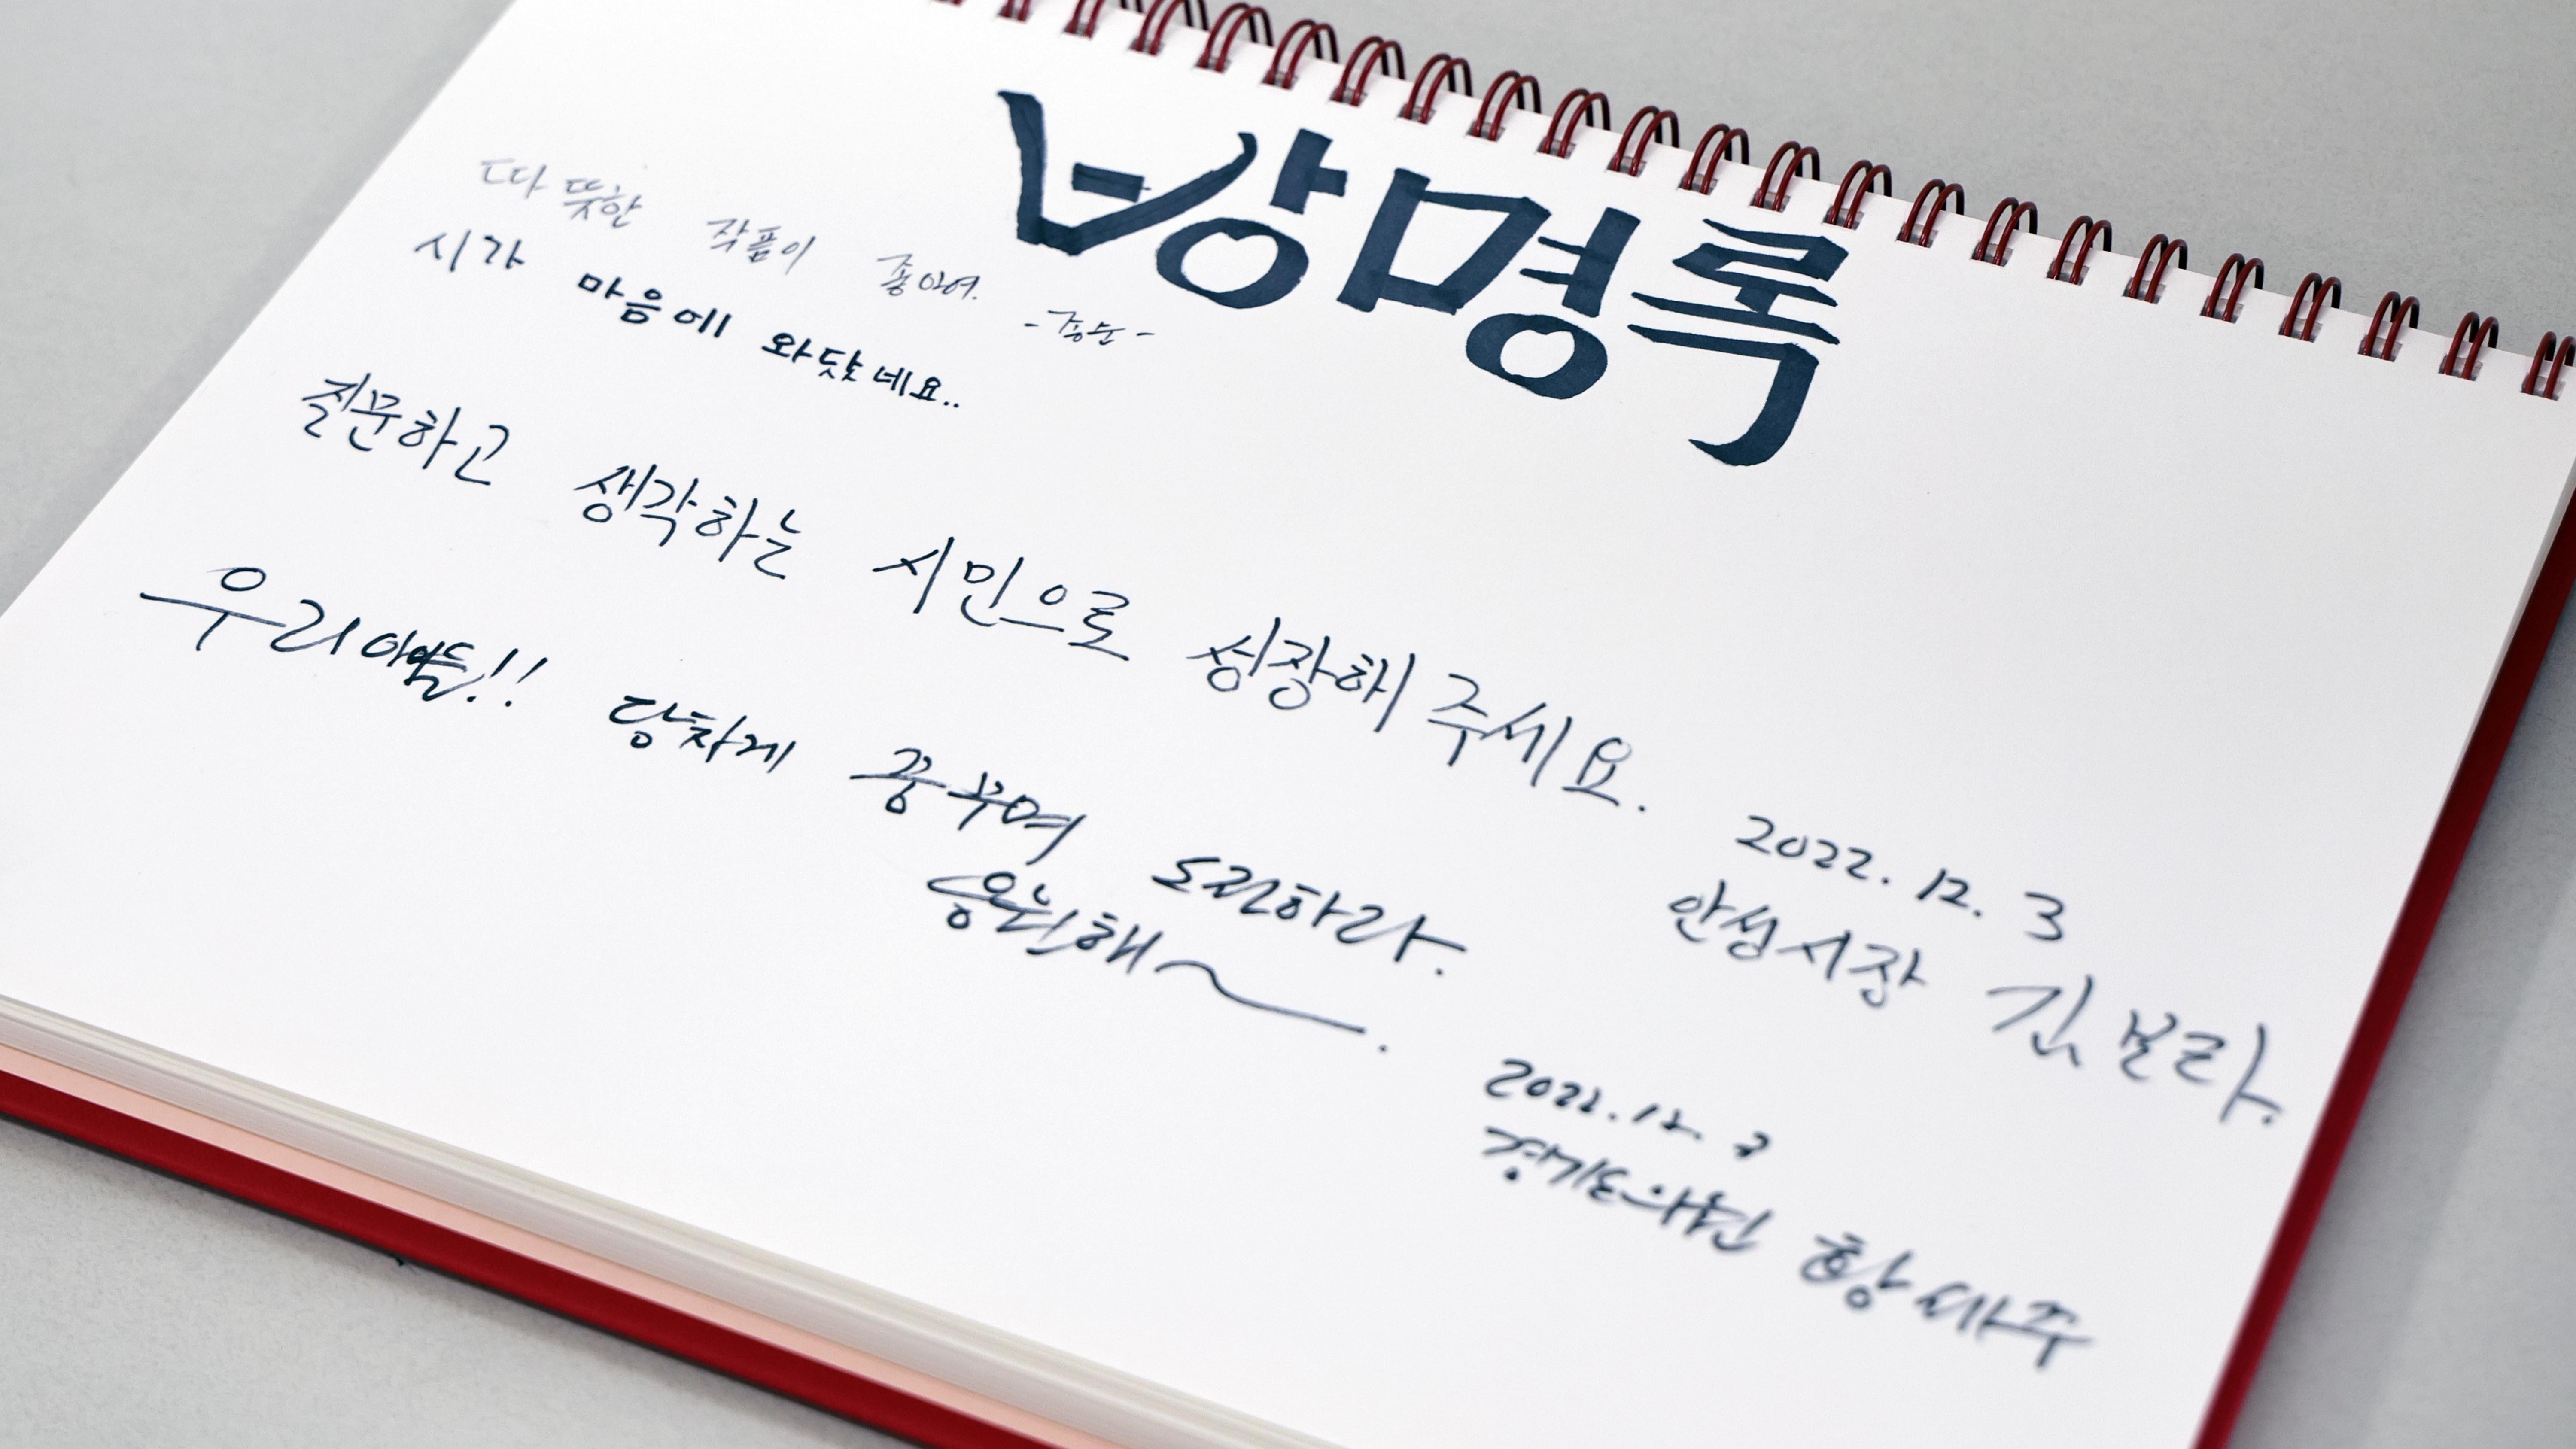 방명록
따뜻한 작품이 좋아여.
시가 마음에 와닿네요..
질문하고 생각하는 시민으로 성장해 주세요.
2022. 12. 3
안성시장 김보라.
우리 !! 당차게 꿈꾸며 도전하라.
응원해~.
2022. 12. 3
경기도의원 황세주